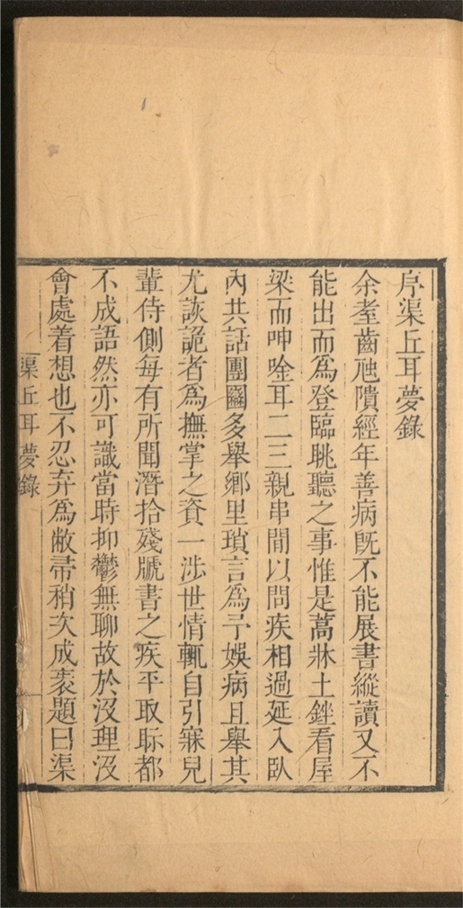 序渠丘耳夢錄
余耊齒虺隤經年善病旣不能展書縱讀又不
能出而爲登臨眺聽之事惟是蒿牀土銼看屋
梁而呻唫耳二三親串間以問疾相過延入臥
內共話團圞多舉鄉里瑣言爲予娛病且舉其
尤詼詭者爲撫掌之資一涉世情輒自引寐兒
輩侍側每有所聞潛拾殘牘書之疾平取眎都
不成語然亦可識當時抑鬱無聊故於沒理沒
會處着想也不忍弃爲敝帚稍次成袠題曰渠
渠丘耳夢錄